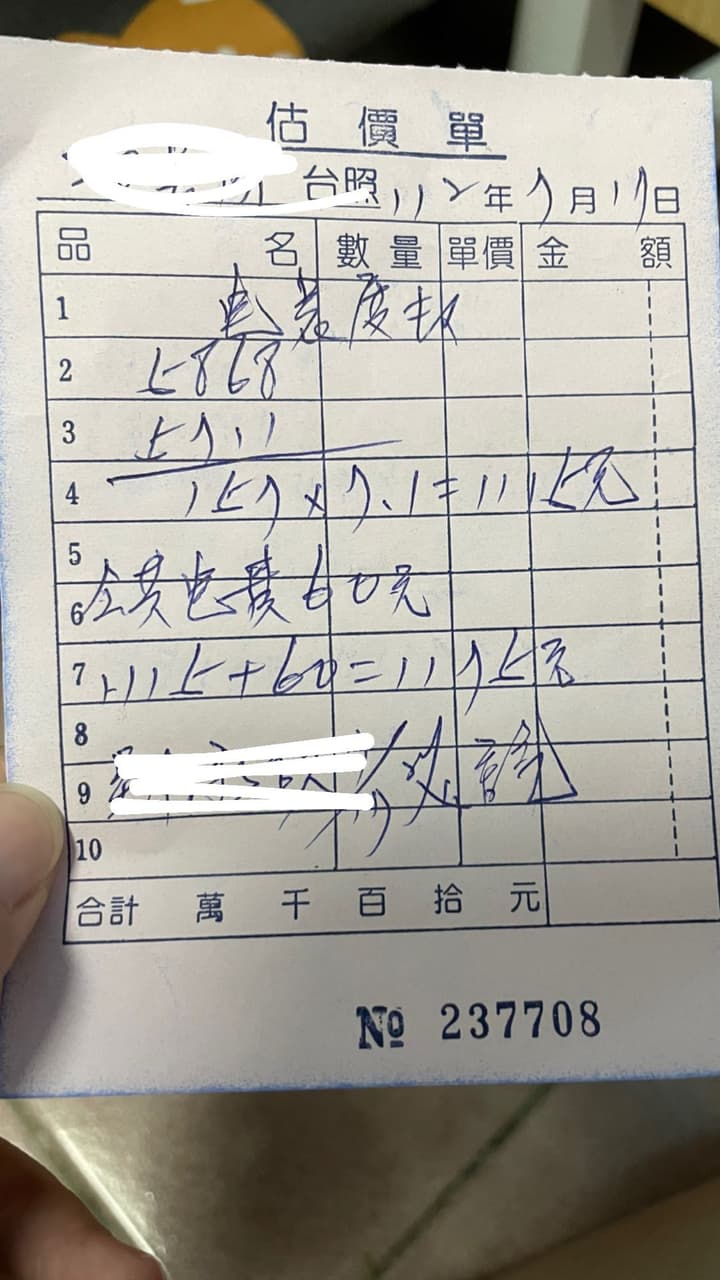 估價單
台照 112年7月17日
品名 數量 單價 金額
1 电表度
2 5868
3 5711
4 157×7.1=1115元
5
6 公共电費60元
7 1115+60=1175元
8
9
10
合計 萬 千 百 拾 元
№ 237708